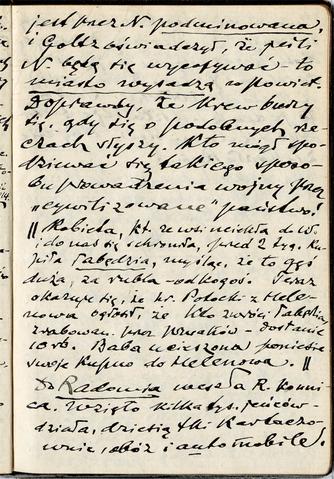 jest przez N. podminowana,
i Goltz oświadczył, że jeśli
N. będą się wycofywać - to
miasto wysadzą w powiet.
Doprawdy, że krew burzy
się, gdy się o podobnych rze-
czach słyszy. Kto mógł spo-
dziewać się takiego sposo-
bu prowadzenia wojny przez
"cywilizowane" państwo!
|| Kobieta, kt. ze wsi uciekła d. W.
i do nas się schroniła, przed 2 tyg. ku-
piła łabędzia, myśląc, że to gęś
duża, za rubla - od kogoś. Teraz
okazuje się, że hr. Potocki z Hele-
nowa ogłosił, że kto zwróci łabędzia
zrabowan. przez prusaków - dostanie
10 rb. Baba ucieszona poniesie
swoje kupno do Helenowa. ||
Do Radomia weszła R. konni-
ca. Wzięto kilka tys. jeńców,
działa, dziesiątki karta­czo-
wnic, obóz i automobile.